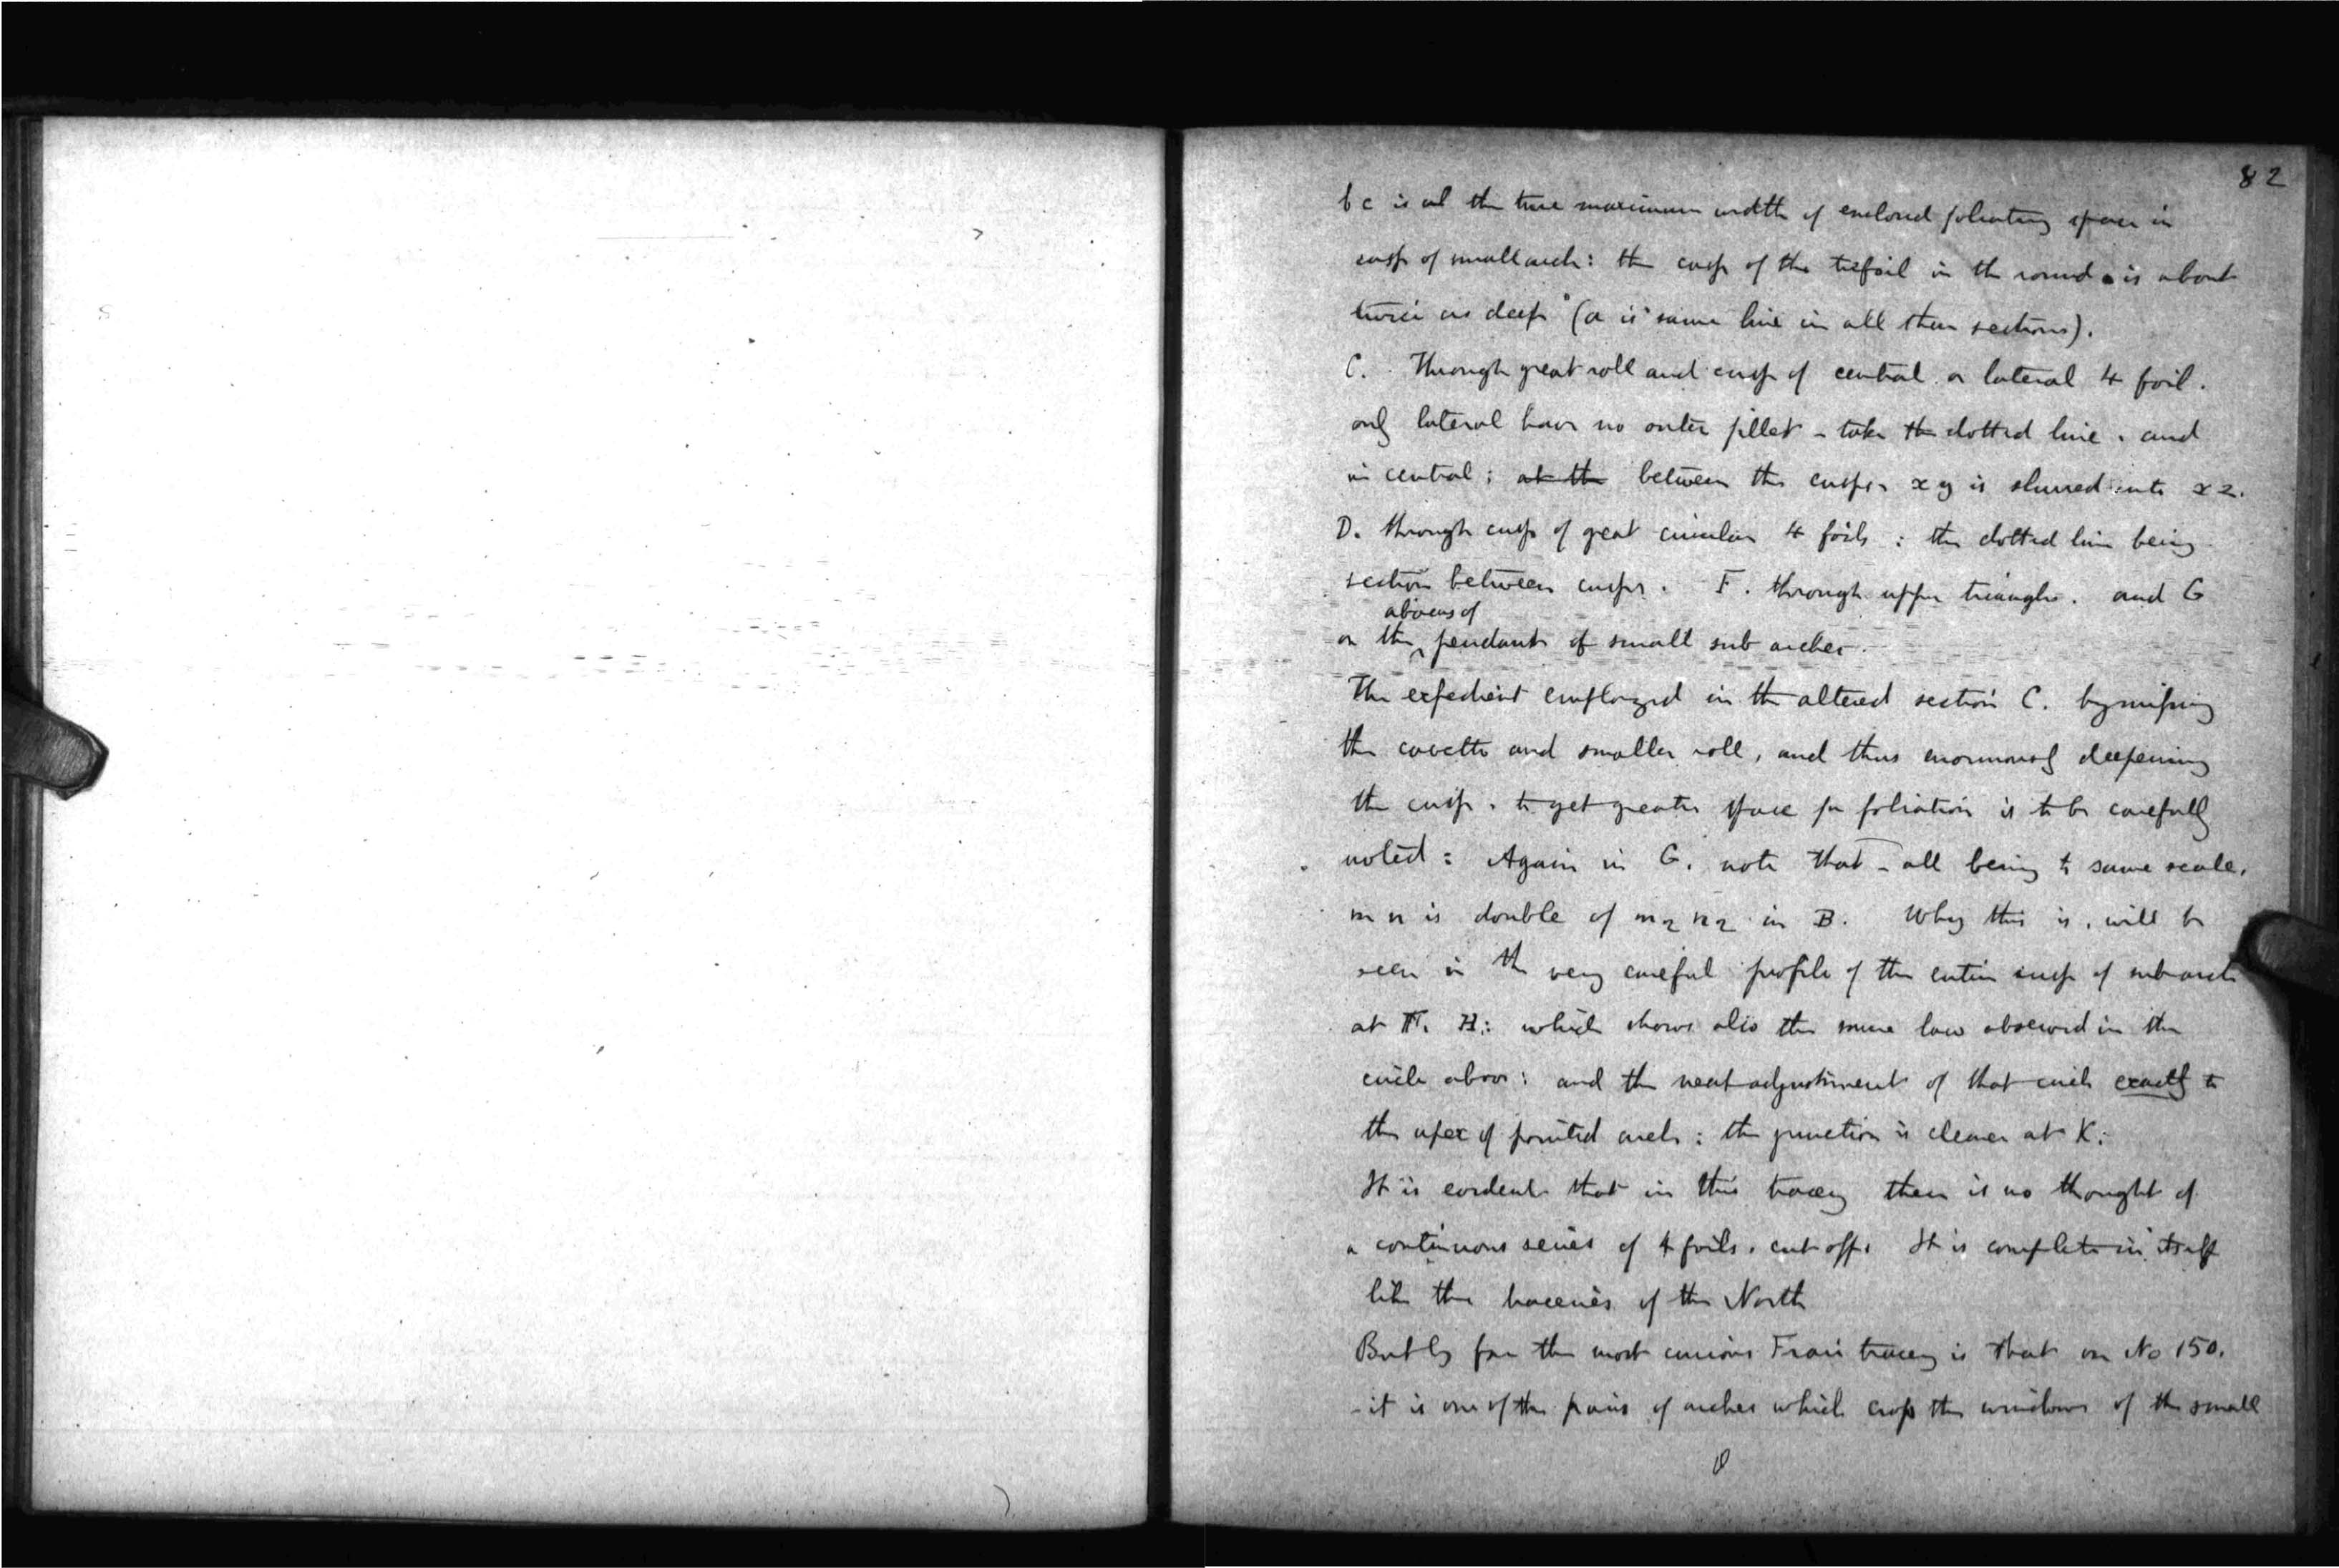 82
b c is al the true maximum width of enclosed foliating space in
cusp of small arch: the cusp of the trefoil in the round is about
twice as deep (a is same line in all these sections).
C. Through great roll and cusp of central or lateral 4 foil.
only lateral have no outer fillet - take the dotted line. and
in central; at the between the cusps x y is slurred into x z.
D. through cusp of great circular 4 foils : the dotted line being
section between cusps. F. through upper triangle. and G
abacus of
on the pendant of small sub arches.
The expedient employed in the altered section C. by missing
the cavetto and smaller roll, and thus enormously deepening
the cusp. to get greater space for foliation is to be carefully
noted: Again in G. note that - all being to same scale,
m n is double of m2 n2 in B. Why this is, will be
seen in the very careful profile of the entire cusp of subarch
at H: which shows also the same law observed in the
circle above: and the neat adjustment of that circle exactly to
the apex of pointed arch: the junction is clearer at K:
It is evident that in this tracery there is no thought of
a continuous series of 4 foils. cut off. It is complete in itself
like the traceries of the North
But by far the most curious Frari tracery is that on No 150.
- it is one of the pairs of arches which crop the windows of the small